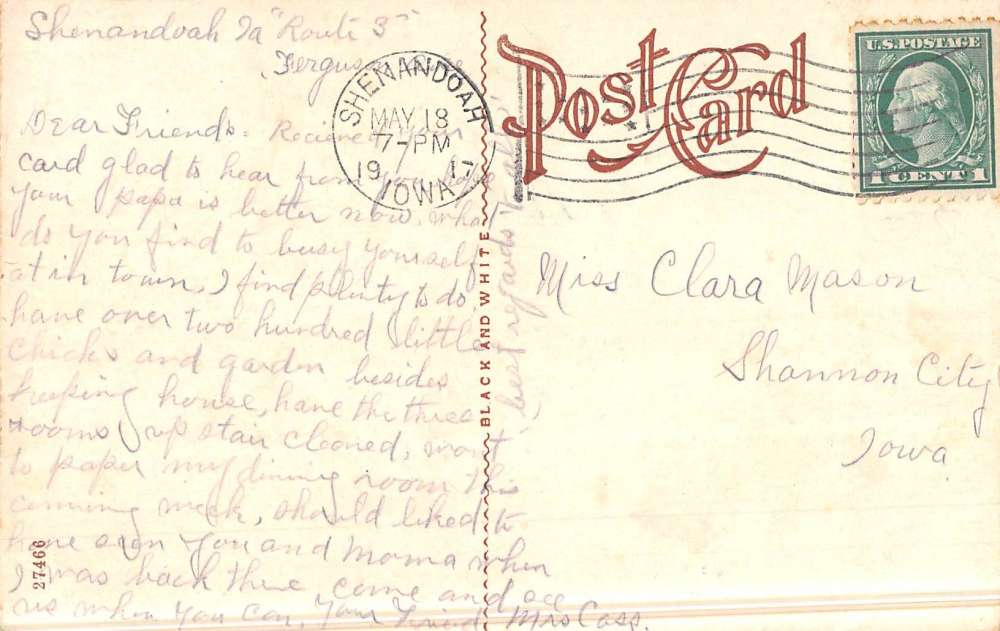 Shenandoah Ia "Route 3"
Dear Friends. Recieved your
card glad to hear from you hope
your papa is better now. what
do you find to busy yourself
at in town, I find plenty to do
have over two hundred little
chicks and garden besides
keeping house, have the three
rooms up stair cleaned, want
to paper my dining room this
comming week, should liked to
have seen you and Moma when
I was back there, come and see
us when you can, your Friend Mrs Cass.
best regards to
27466
BLACK AND WHITE
SHENANDOAH
MAY 18
7-PM
19 17
IOWA
Post Card
U.S. POSTAGE
1 CENT 1
Miss Clara Mason
Shannon City
Iowa